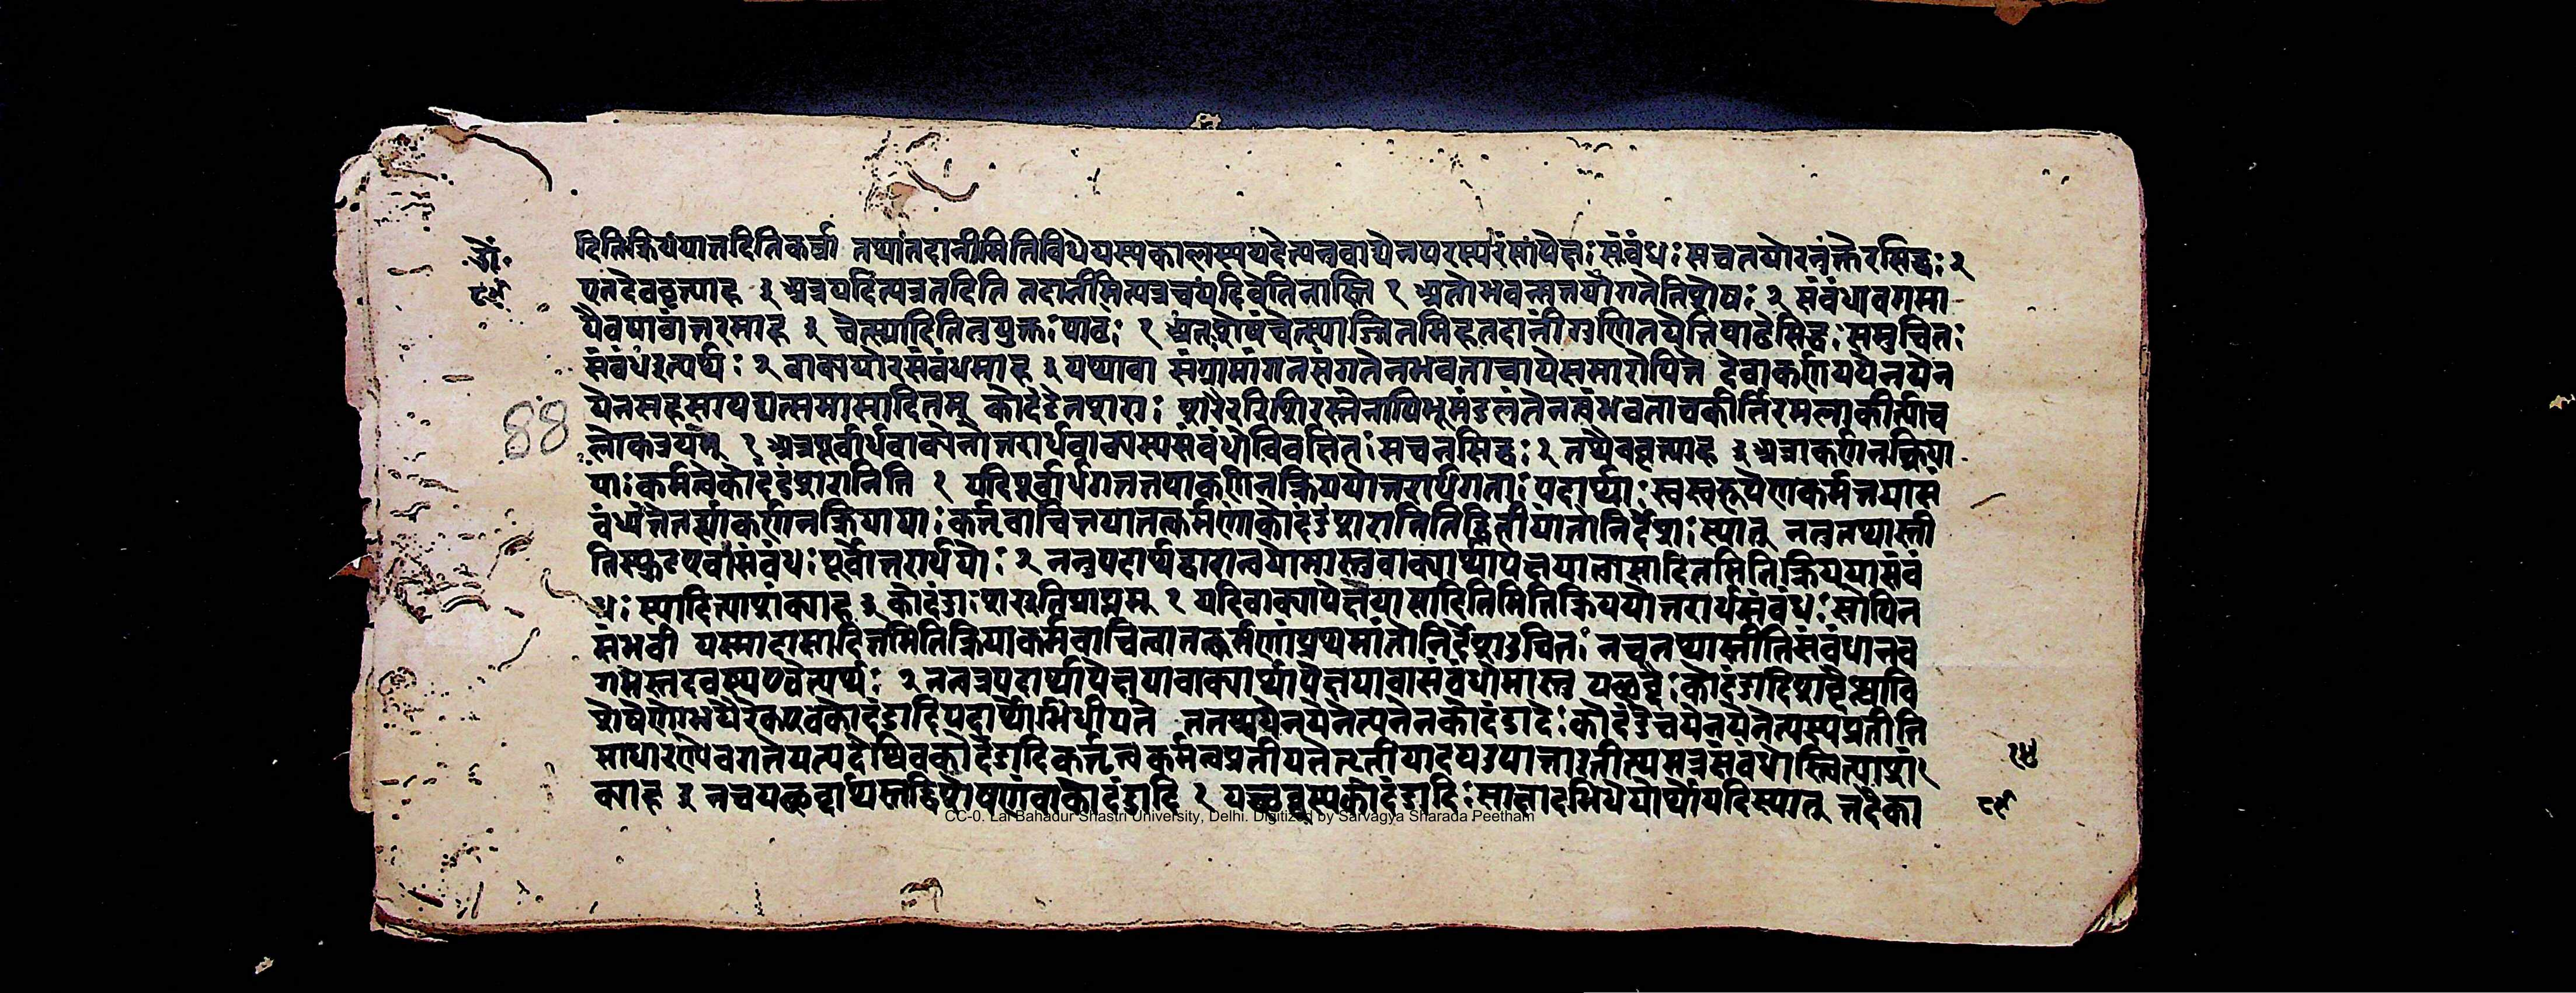 दितिक्रिययात्तदितिकर्त्रा तथातदानीमितिविधेयस्यकालस्ययदेत्यनुवाद्येनपरस्परंसापेक्षः संबंधः सचतयोरनंतरसिद्धः २
एतदेववृत्त्याह ३ अत्रयदित्यत्रतदिति तदानीमित्यत्रचयदेतिनास्ति १ अतोभवन्मत्तयोगतेतिशेषः २ संबंधावगमा
यैवपाठांतरमाह ३ चेत्स्यादितितुयुक्तः पाठः १ अतःशेषंचेत्स्याज्जितमिहतदानींगुणितयेतिपाठेसिद्धः समुचितः
संबंधइत्यर्थः २ वाक्ययोरसंबंधमाह ३ यथावा संग्रामांगनसंगतेनभवताचापेसमारोपिते देवाकर्णययेनयेन
येनसहसायद्यत्समासादितम् कोदंडेनशराः शरैररिशिरस्तेनापिभूमंडलंतेनत्वंभवताचकीर्तिरमलाकीर्त्याच
लोकत्रयम् १ अत्रपूर्वार्धवाक्येनोत्तरार्धवाक्यस्यसंबंधोविवक्षितः सचनसिद्धः २ तथैववृत्त्याह ३ अत्राकर्णनक्रिया
याः कर्मत्वेकोदंडंशरानिति १ यदिपूर्वार्धगततयाकर्णनक्रिययोत्तरार्धगताः पदार्थाः स्वस्वरूपेणकर्मतयासं
बंध्यंतेतर्ह्याकर्णनक्रियायाः कर्तृवाचितयातत्कर्मणाकोदंडंशरानितिद्वितीयांतोनिर्देशः स्यात् नतुतथास्ती
तिस्फुटएवासंबंधः पूर्वोत्तरार्धयोः २ ननुपदार्थद्वारान्वयोमास्तुवाक्यार्थापेक्षयात्वासादितमितिक्रिययासंबं
धः स्यादित्याशंक्याह ३ कोदंडः शराइतिप्राप्तम् १ यदिवाक्यापेक्षयासादितमितिक्रिययोत्तरार्धसंबंधः सोपिन
संभवी यस्मादासादितमितिक्रियाकर्मवाचित्वात्तत्कर्मणांप्रथमांतोनिर्देशउचितः नचतथास्तीतिसंबंधानव
गमस्तदवस्थएवेत्यर्थः २ नन्वत्रपदार्थापेक्षयावाक्यार्थापेक्षयावासंबंधोमास्तु यच्छब्दः कोदंडादिशब्दैश्चावि
शेषेणोभयैरेकएवकोदंडादिपदार्थोभिधीयते ततश्चयेनयेनेत्यनेनकोदंडादेः कोदंडेचयेनयेनेत्यस्यप्रतीति
साधारण्येवगतेयत्पदेष्विवकोदंडादिकर्तृत्वकर्मत्वप्रतीयतेतृतीयादयउपात्ताइतीत्यमत्रसंबंधोस्त्वित्याशं
क्याह ३ नचयच्छब्दार्थस्तद्विशेषणंवाकोदंडादि १ यच्छब्दस्यकोदंडादिः साक्षादभिधेयोर्थोयदिस्यात् तदैका
88
CC-0. Lal Bahadur Shastri University, Delhi. Digitized by Sarvagya Sharada Peetham